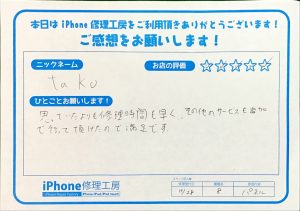 本日は iPhone 修理工房をご利用頂きありがとうございます！
ご感想をお願いします！
ニックネーム
お店の評価
tako
ひとことお願いします！
思っていたよりも修理時間も早く、その他のサービスも
で行って頂けたので満足です
iPhone修理工房